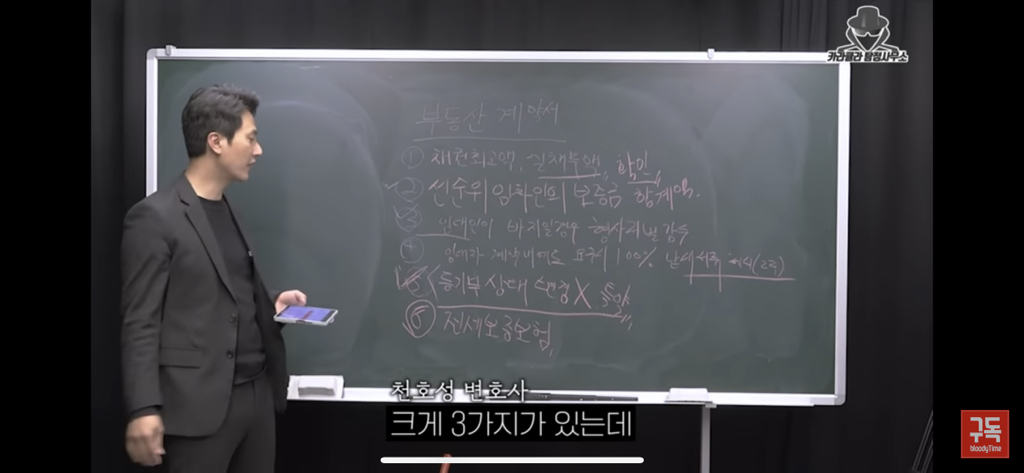 카라큘라 탐정사무소
부동산 계약서
① 채권최고액, 실채무액, 확인
② 선순위 임차인의 보증금 합계액.
③ 임대인이 바지일경우 형사처벌감수
④ 임차인 계약 100%
⑤ 등기부 상태 변경 X 특약
⑥ 전세보증보험
천호성 변호사
크게 3가지가 있는데
구독
bloodyTime